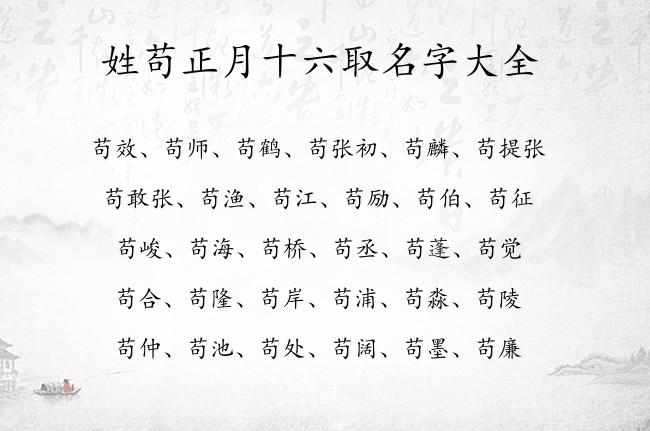 姓苟正月十六取名字大全
苟效、苟师、苟鹤、苟张初、苟麟、苟提张
苟敢张、苟渔、苟江、苟励、苟伯、苟征
苟峻、苟海、苟桥、苟丞、苟蓬、苟觉
苟合、苟隆、苟岸、苟浦、苟淼、苟陵
苟仲、苟池、苟处、苟阔、苟墨、苟廉